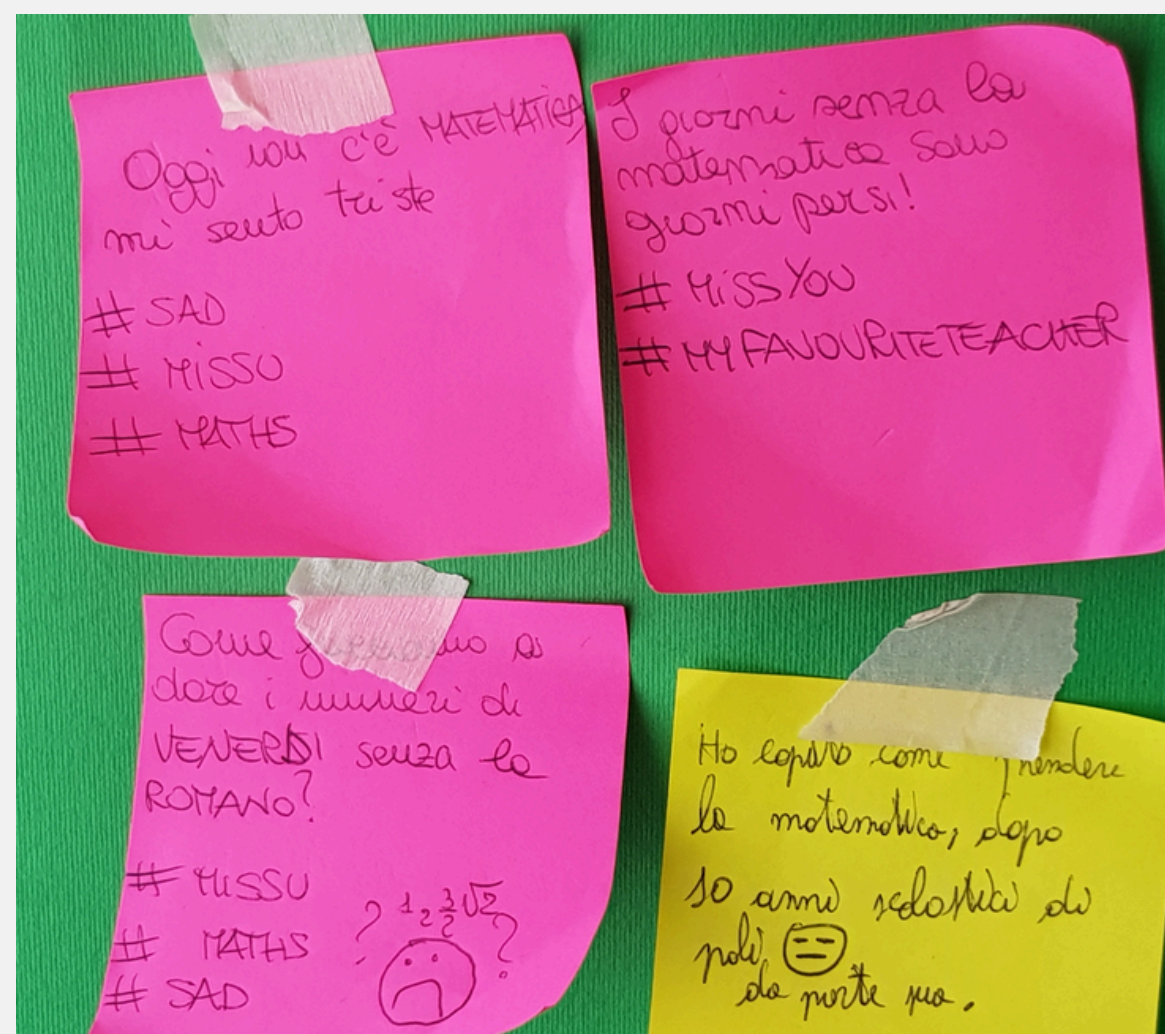 Oggi non c'è MATEMATICA
mi sento triste
# SAD
# MISSU
# MATHS
I giorni senza la
matematica sono
giorni persi!
# MISS YOU
# MY FAVOURITETEACHER
Come facciamo a
dare i numeri di
VENERDI senza la
ROMANO?
# MISSU
# MATHS
# SAD
? 1 2 3/2 √2 ?
Ho capito come prendere
la matematica, dopo
10 anni scolastici di
pali
da parte sua.